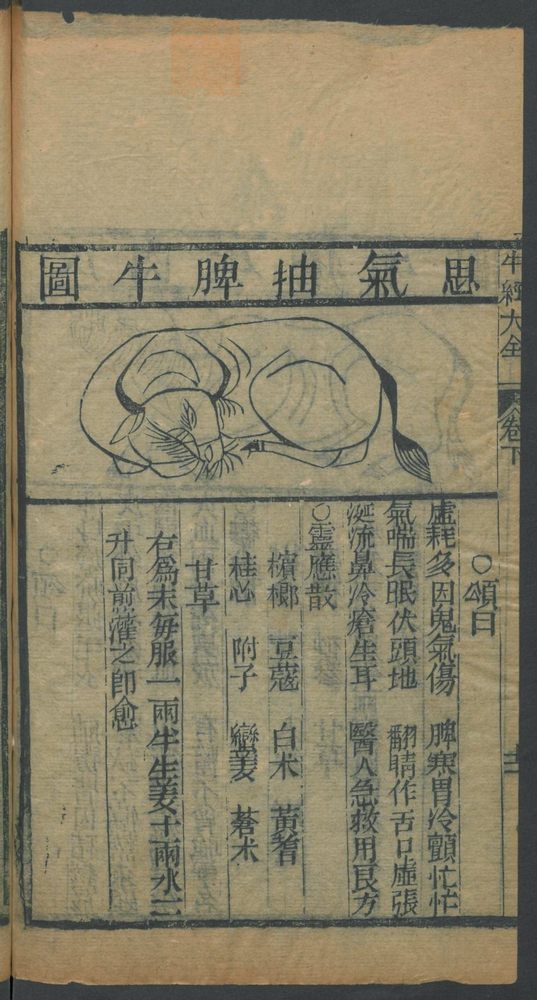 牛經大全
卷下
思氣抽脾牛圖
○頌曰
虛耗多因鬼氣傷 脾寒胃冷顫忙忙
氣喘長眠伏頭地 翻睛作舌口虛張
涎流鼻冷瘡生耳 醫人急救用良方
○靈應散
檳榔 豆蔻 白术 黃耆
桂心 附子 蒼术
甘草
右爲末每服一兩半生姜十兩水二
升同煎灌之即愈